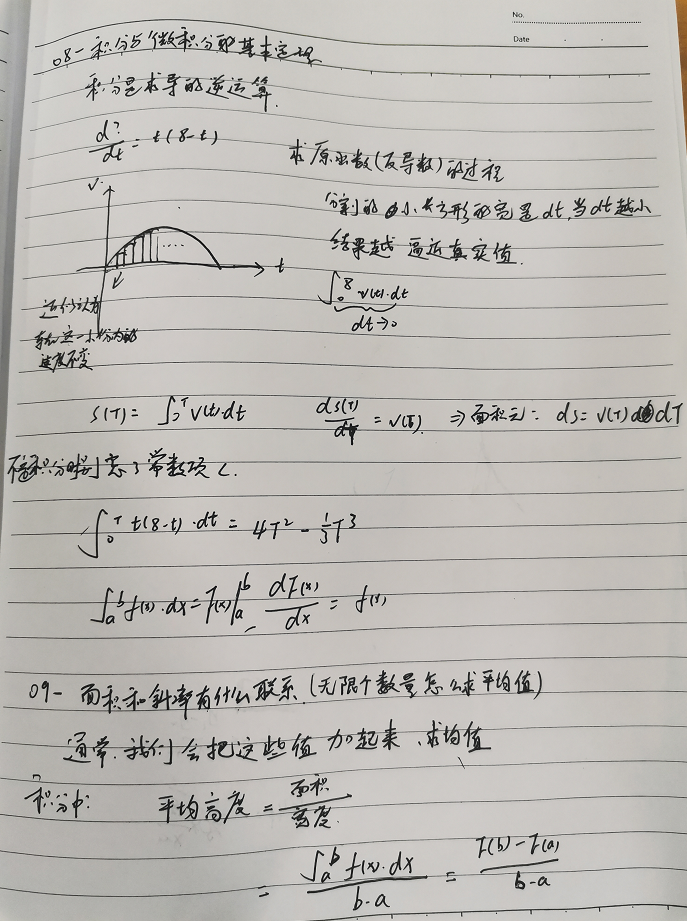 No.
Date
08-积分与微积分的基本定理
积分是求导的逆运算.
d?/dt = t(8-t)
求原函数(反导数)的过程
V
t
分割的小长方形的宽是dt,当dt越小
结果越逼近真实值.
∫₀⁸ v(t)·dt
dt→0
速度不变
S(T) = ∫₀ᵀ v(t)·dt
dS(T)/dT = v(T). ⇒ 面积元: dS = V(T) dT
不定积分时别忘了常数项C.
∫₀ᵀ t(8-t)·dt = 4T² - 1/3T³
∫ₐᵇ f(x)·dx = F(x)|ₐᵇ dF(x)/dx = f(x)
09- 面积和斜率有什么联系.(无限个数量怎么求平均值)
通常.我们会把这些值加起来、求均值
积分中:
平均高度 = 面积/宽度.
= ∫ₐᵇ f(x)·dx / b-a = F(b)-F(a) / b-a